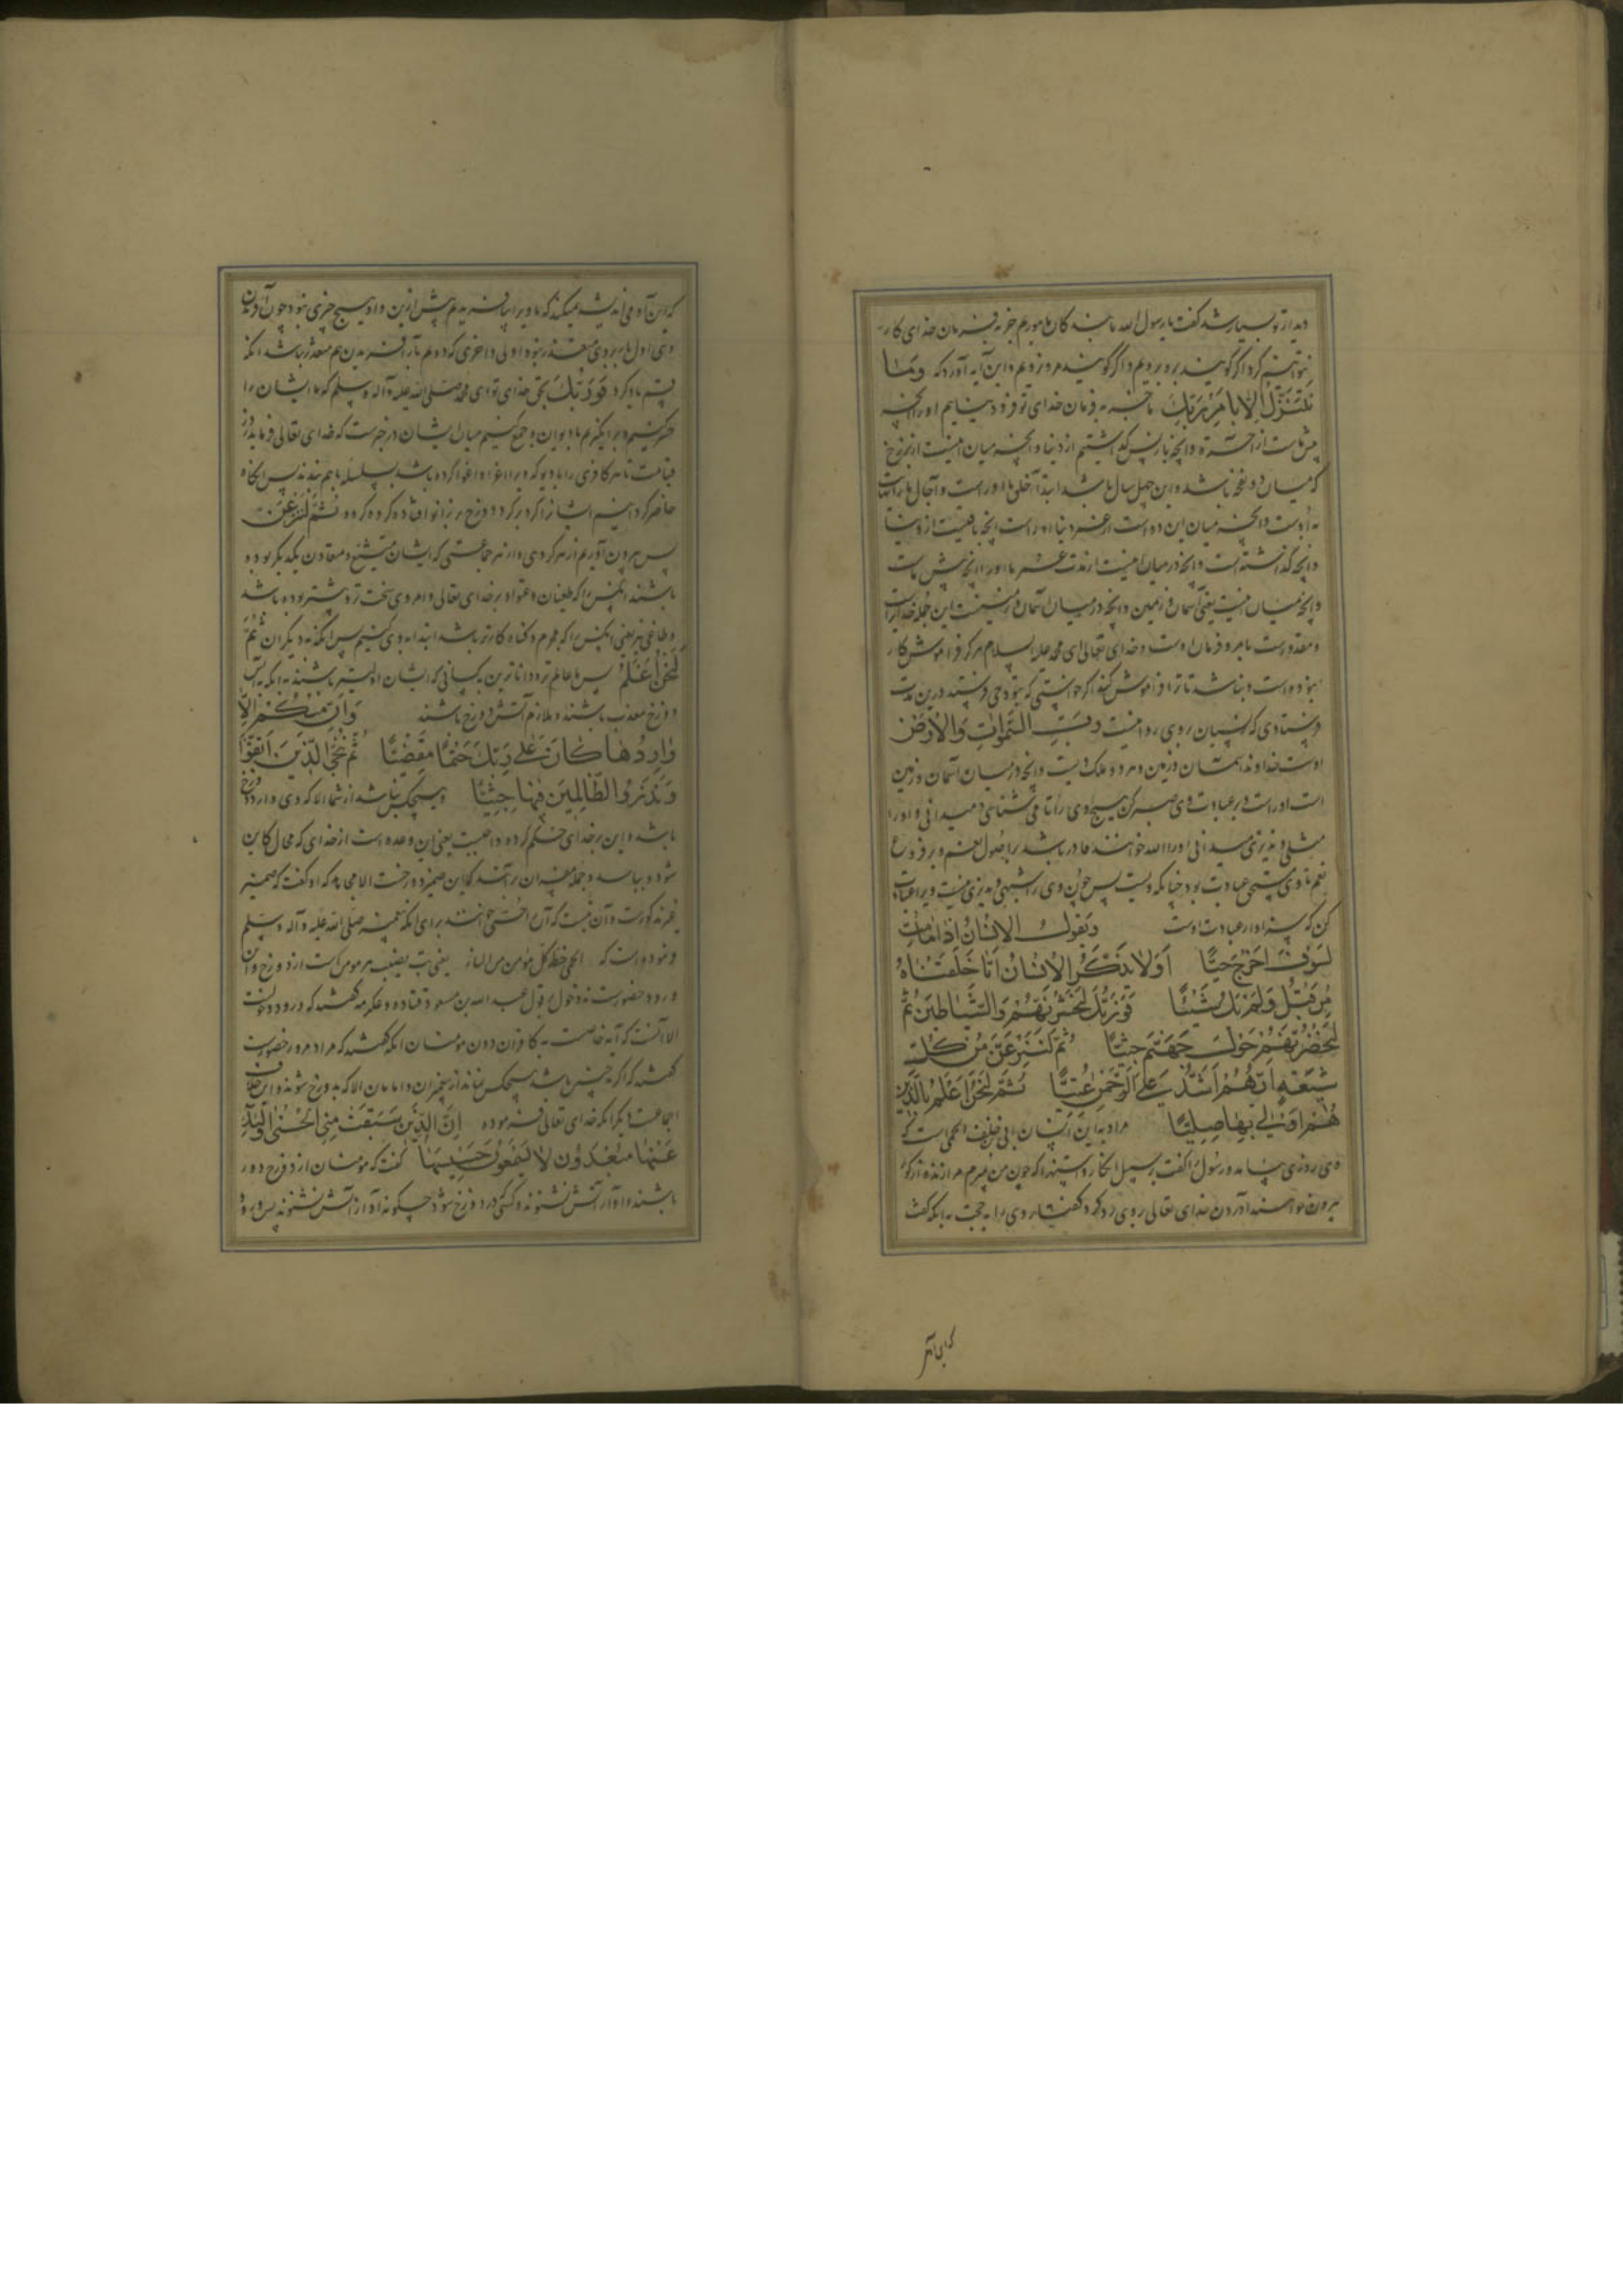 دیدار تو بسیار شد گفت یا رسول الله ما بندگان مامورم جز به فرمان خدای کار
نتوانیم کرد اگر گویند برو برویم و اگر گویند مرو نرویم و این آیه آورد که وَمَا
نَتَنَزَّلُ اِلَّا بِاَمْرِ رَبِّكَ ما جز به فرمان خدای تو فرود نیاییم اوراست آنچه
پیش ماست از آخرة و آنچه باز پس گذاشتیم از دنیا و آنچه میان اینست از برزخ
که میان دو نفخه باشد و این چهل سال باشد ابتدا خلق ما اوراست و آجال ما را انتها
به اوست و آنچه میان این دو است از عمر دنیا اوراست آنچه باقیست از دنیا
و آنچه گذشته است و آنچه در میان اینست از مدت عمر ما اوراست آنچه پیش ماست
و آنچه میان اینست یعنی آسمان و زمین و آنچه در میان آسمان و زمینست این جمله خدایراست
و مقدور اوست بامر و فرمان اوست و خدای تعالی ای محمد علیه السلام هرگز فراموش کار
نبوده است و نباشد تا ترا فراموش کند اگر خواستی که بتو وحی فرستد درین مدت
فرستادی که نسیان بر وی روا نیست رَبُّ السَّمٰوَاتِ وَالْاَرْضِ
اوست خداوند آسمان و زمین و هر دو ملک اوست و آنچه در میان آسمان و زمین
است اوراست و بر عبادت وی صبر کن هیچ وی را تا می شناسی و میدانی و او را
مثلی و نذیری میدانی او را الله خوانند قادر باشد بر اصول نعم و بر فروع
نعم تا وی مستحق عبادت بود چنانکه ویست پس چون وی را شبهی و نذیری نیست ویرا عبادت
کن که سزاوار عبادت اوست وَيَقُولُ الْاِنْسَانُ اَئِذَا مَا مِتُّ
لَسَوْفَ اُخْرَجُ حَيًّا اَوَلَا يَذْكُرُ الْاِنْسَانُ اَنَّا خَلَقْنَاهُ
مِنْ قَبْلُ وَلَمْ يَكُ شَيْئًا فَوَرَبِّكَ لَنَحْشُرَنَّهُمْ وَالشَّيَاطِينَ ثُمَّ
لَنُحْضِرَنَّهُمْ حَوْلَ جَهَنَّمَ جِثِيًّا ثُمَّ لَنَنْزِعَنَّ مِنْ كُلِّ
شِيعَةٍ اَيُّهُمْ اَشَدُّ عَلَى الرَّحْمٰنِ عِتِيًّا ثُمَّ لَنَحْنُ اَعْلَمُ بِالَّذِينَ
هُمْ اَوْلٰى بِهَا صِلِيًّا مراد به این انسان ابی خلف الجمحی است که
وی روزی بیامد و رسول را گفت بر سبیل انکار و استهزا که چون من بمیرم مرا زنده از گور
بیرون خواهند آوردن خدای تعالی بر وی رد کرد گفتار وی را به حجت به آنکه گفت
که این آدمی اندیشه نمیکند که ما ویرا بیافریدیم پیش ازین و او هیچ چیزی نبود چون آفریدن
وی اول بار بر وی متعذر نبود اولی و احری که دوم بار آفریدن هم متعذر نباشد آنگه
قسم یاد کرد فَوَرَبِّكَ بحق خدای تو ای محمد صلی الله علیه وآله وسلم که ما ایشان را
حشر کنیم و برانگیزیم با دیوان و جمع کنیم میان ایشان در خبرست که خدای تعالی فرماید روز
قیامت تا هر کافری را با دیو که ویرا اغرا و اغوا کرده باشد بسلسله با هم بندند پس آنگاه
حاضر کردانیم ایشانرا گرد بر گرد دوزخ بر زانو افتاده گروه گروه ثُمَّ لَنَنْزِعَنَّ
پس بیرون آوریم از هر گروهی و از هر جماعتی که ایشان متشیع و معاون یکدیگر بوده
باشند آنکس را که طغیان و عتو او بر خدای تعالی و امر وی سخت تر و بیشتر بوده باشد
و طاغی تر یعنی آنکس را که مجرم و گناه کارتر باشد ابتدا به وی کنیم پس آنگه به دیگران ثُمَّ
لَنَحْنُ اَعْلَمُ پس ما عالم تر و داناترین به کسانی که ایشان اولیتر باشند به آنکه به آتش
دوزخ معذب باشند و ملازم آتش دوزخ باشند وَاِنْ مِنْكُمْ اِلَّا
وَارِدُهَا كَانَ عَلٰى رَبِّكَ حَتْمًا مَقْضِيًّا ثُمَّ نُنَجِّي الَّذِينَ اتَّقَوْا
وَنَذَرُ الظَّالِمِينَ فِيهَا جِثِيًّا و هیچکس نباشد از شما الا که وی وارد دوزخ
باشد و این بر خدای حکم کرده و واجبست یعنی این وعده است از خدای که محال کاین
شود و بباشد و جمله مفسران بر آنند که این ضمیر دوزخست الا مجاهد که او گفت که ضمیر
غیر مذکورست و آن تبست که آن را حُمّی خوانند برای آنکه پیغمبر صلی الله علیه وآله وسلم
فرموده است که الحمی حظ کل مؤمن من النار یعنی تب نصیب هر مومن است از دوزخ و آن
ورود حضورست نه دخول بقول عبد الله بن مسعود و قتاده و عکرمه گفتند که ورود دخولست
الا آنست که آیه خاصست به کافران دون مؤمنان آنکه گفتند که مراد به ورود حضورست
گفتند که اگر چنین باشد هیچکس نماند از پیغمبران و امامان الا که بدوزخ شوند و این خلاف
اجماعست دیگر آنکه خدای تعالی فرموده اِنَّ الَّذِينَ سَبَقَتْ لَهُمْ مِنَّا الْحُسْنٰى اُولٰئِكَ
عَنْهَا مُبْعَدُونَ لَا يَسْمَعُونَ حَسِيسَهَا گفت که مؤمنان از دوزخ دور
باشند و آواز آتش نشنوند و کسی که در دوزخ شود چگونه آواز آتش نشنود پس ورود